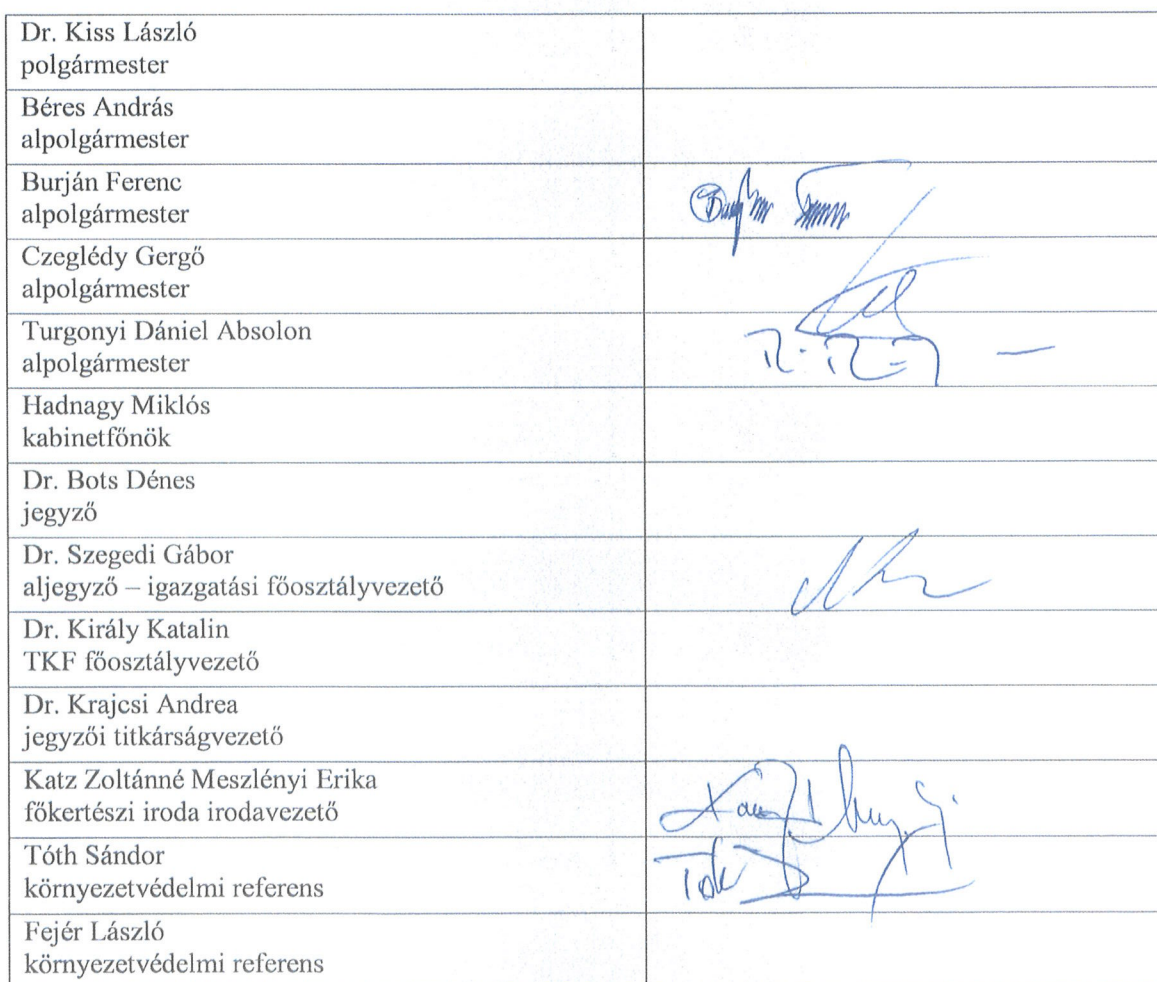 Dr. Kiss László
polgármester
Béres András
alpolgármester
Burján Ferenc
alpolgármester
Czeglédy Gergő
alpolgármester
Turgonyi Dániel Absolon
alpolgármester
Hadnagy Miklós
kabinetfőnök
Dr. Bots Dénes
jegyző
Dr. Szegedi Gábor
aljegyző – igazgatási főosztályvezető
Dr. Király Katalin
TKF főosztályvezető
Dr. Krajcsi Andrea
jegyzői titkárságvezető
Katz Zoltánné Meszlényi Erika
főkertészi iroda irodavezető
Tóth Sándor
környezetvédelmi referens
Fejér László
környezetvédelmi referens